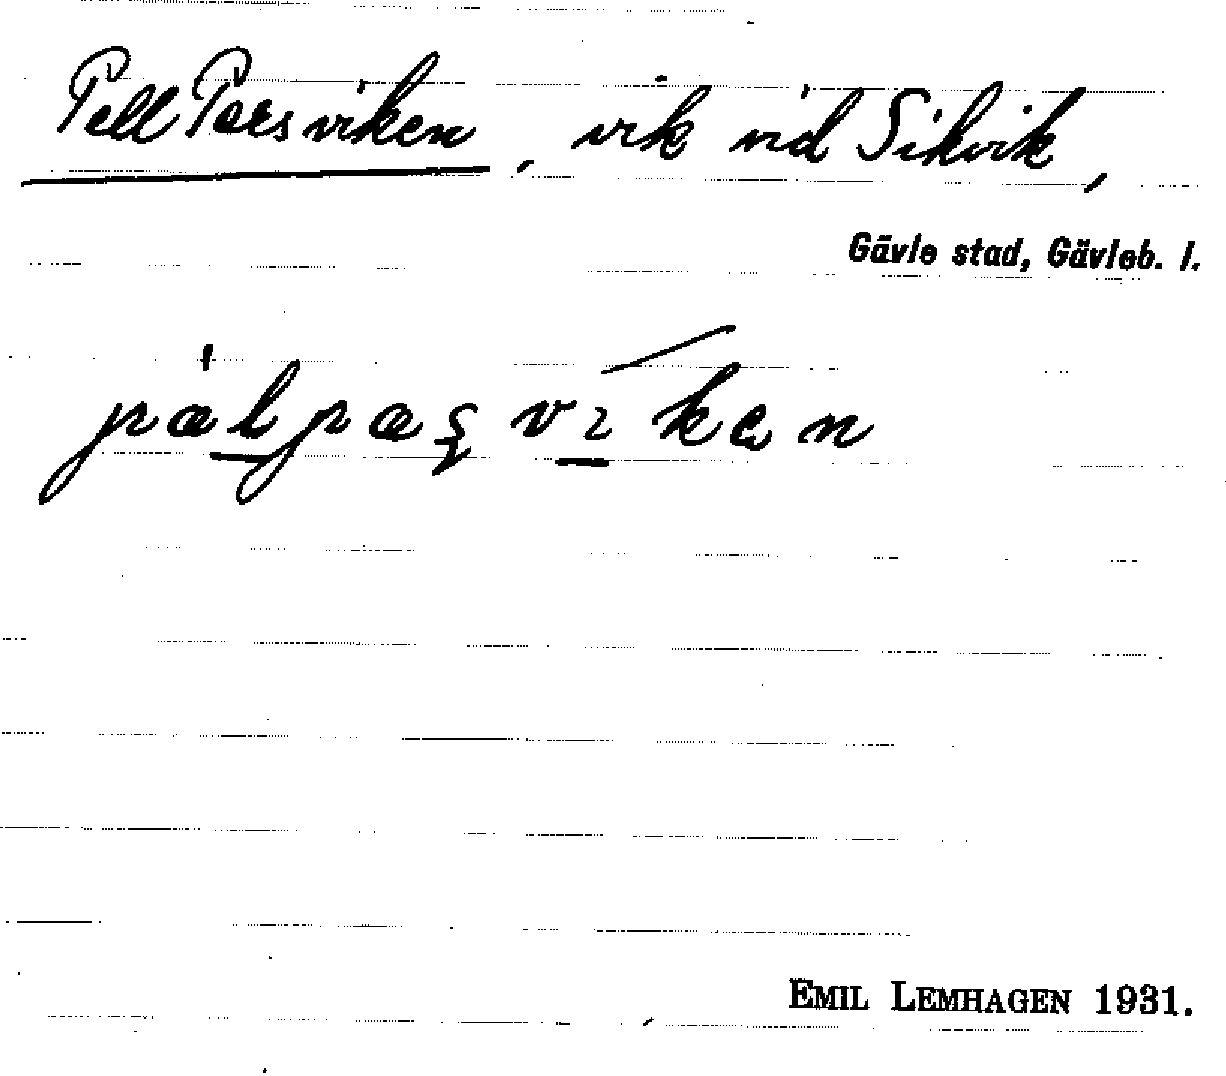 Pell Pers viken, vik vid Sikvik,
Gävle stad, Gävleb. l.
pælpæʂ vikən
EMIL LEMHAGEN 1931.